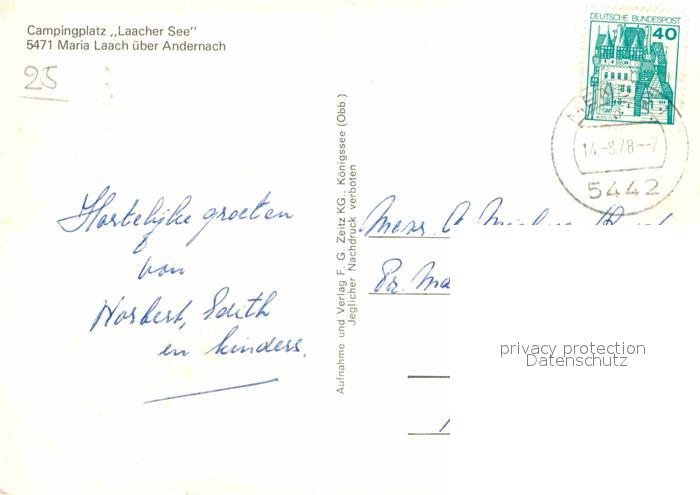 Campingplatz „Laacher See"
5471 Maria Laach über Andernach
25
DEUTSCHE BUNDESPOST
40
5442
Hartelijke groeten
van
Norbert, Edith
en kinders.
Aufnahme und Verlag F. G. Zeitz KG., Königssee (Obb.)
Jeglicher Nachdruck verboten
privacy protection
Datenschutz